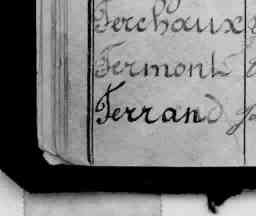 Ferchaux
Fermont
Ferrand